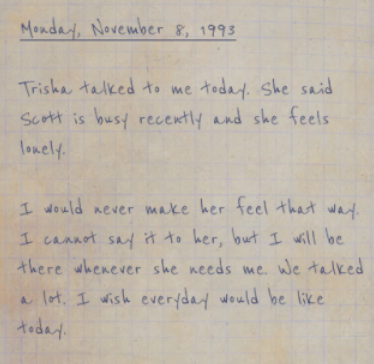 Monday, November 8, 1993
Trisha talked to me today. She said
Scott is busy recently and she feels
lonely.
I would never make her feel that way.
I cannot say it to her, but I will be
there whenever she needs me. We talked
a lot. I wish everyday would be like
today.